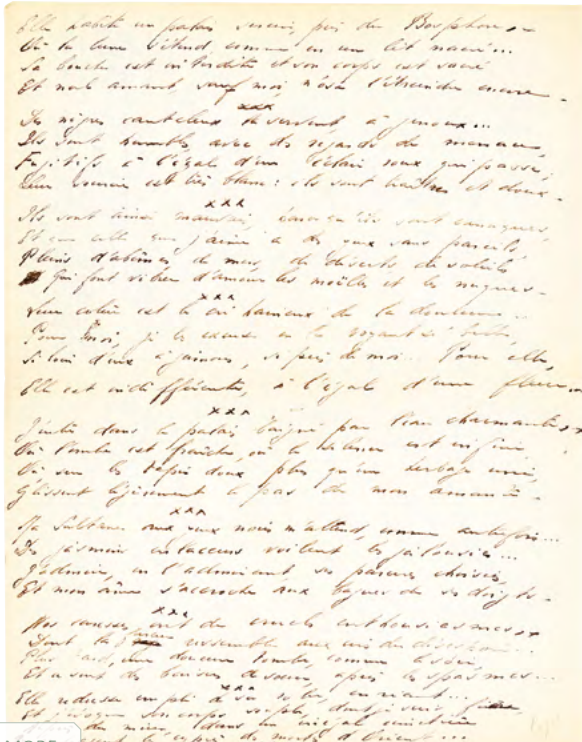 Elle habite un palais ancien, près du Bosphore...
Où la lune s'étend, comme en un lit nacré...
Sa bouche est interdite et son corps est sacré
Et nul amant, sauf moi, n'osa l'étreindre encore.
xxx
Des nègres cauteleux la servent, à genoux...
Ils sont humbles, avec des regards de menace,
Fugitifs à l'égal d'un éclair roux qui passe,
Leur sourire est très blanc: ils sont traîtres et doux.
xxx
Ils sont ainsi mauvais, parce qu'ils sont eunuques,
Et que celle que j'aime a des yeux sans pareils,
Pleins d'abîmes, de mers, de déserts, de soleils
Qui font vibrer d'amour les moelles et les nuques.
xxx
Leur colère est le cri haineux de la douleur...
Pour moi, je les excuse en la voyant si belle,
Si loin d'eux à jamais, si près de moi... Pour elle,
Elle est indifférente, à l'égal d'une fleur...
xxx
J'entre dans le palais baigné par l'eau charmante,
Où l'ombre est fraîche, où le silence est infini,
Où sur les tapis doux plus qu'un herbage uni,
Glissent légèrement les pas de mon amante.
xxx
Ma Sultane aux yeux noirs m'attend, comme autrefois...
Des jasmins enlaceurs voilent les jalousies...
J'admire, en l'admirant, ses parures choisies,
Et mon âme s'accroche aux bagues de ses doigts.
xxx
Nos caresses ont de cruels enthousiasmes...
Dont les rires ressemblent aux cris de désespoir...
Plus tard, une douceur tombe, comme
Et ce sont des baisers de sœur, après les spasmes...
xxx
Elle redresse un pli de sa robe, en riant...
Et j'évoque son corps souple, dont je suis fière,
du mien, dans un inégal
de morts d'Orient...